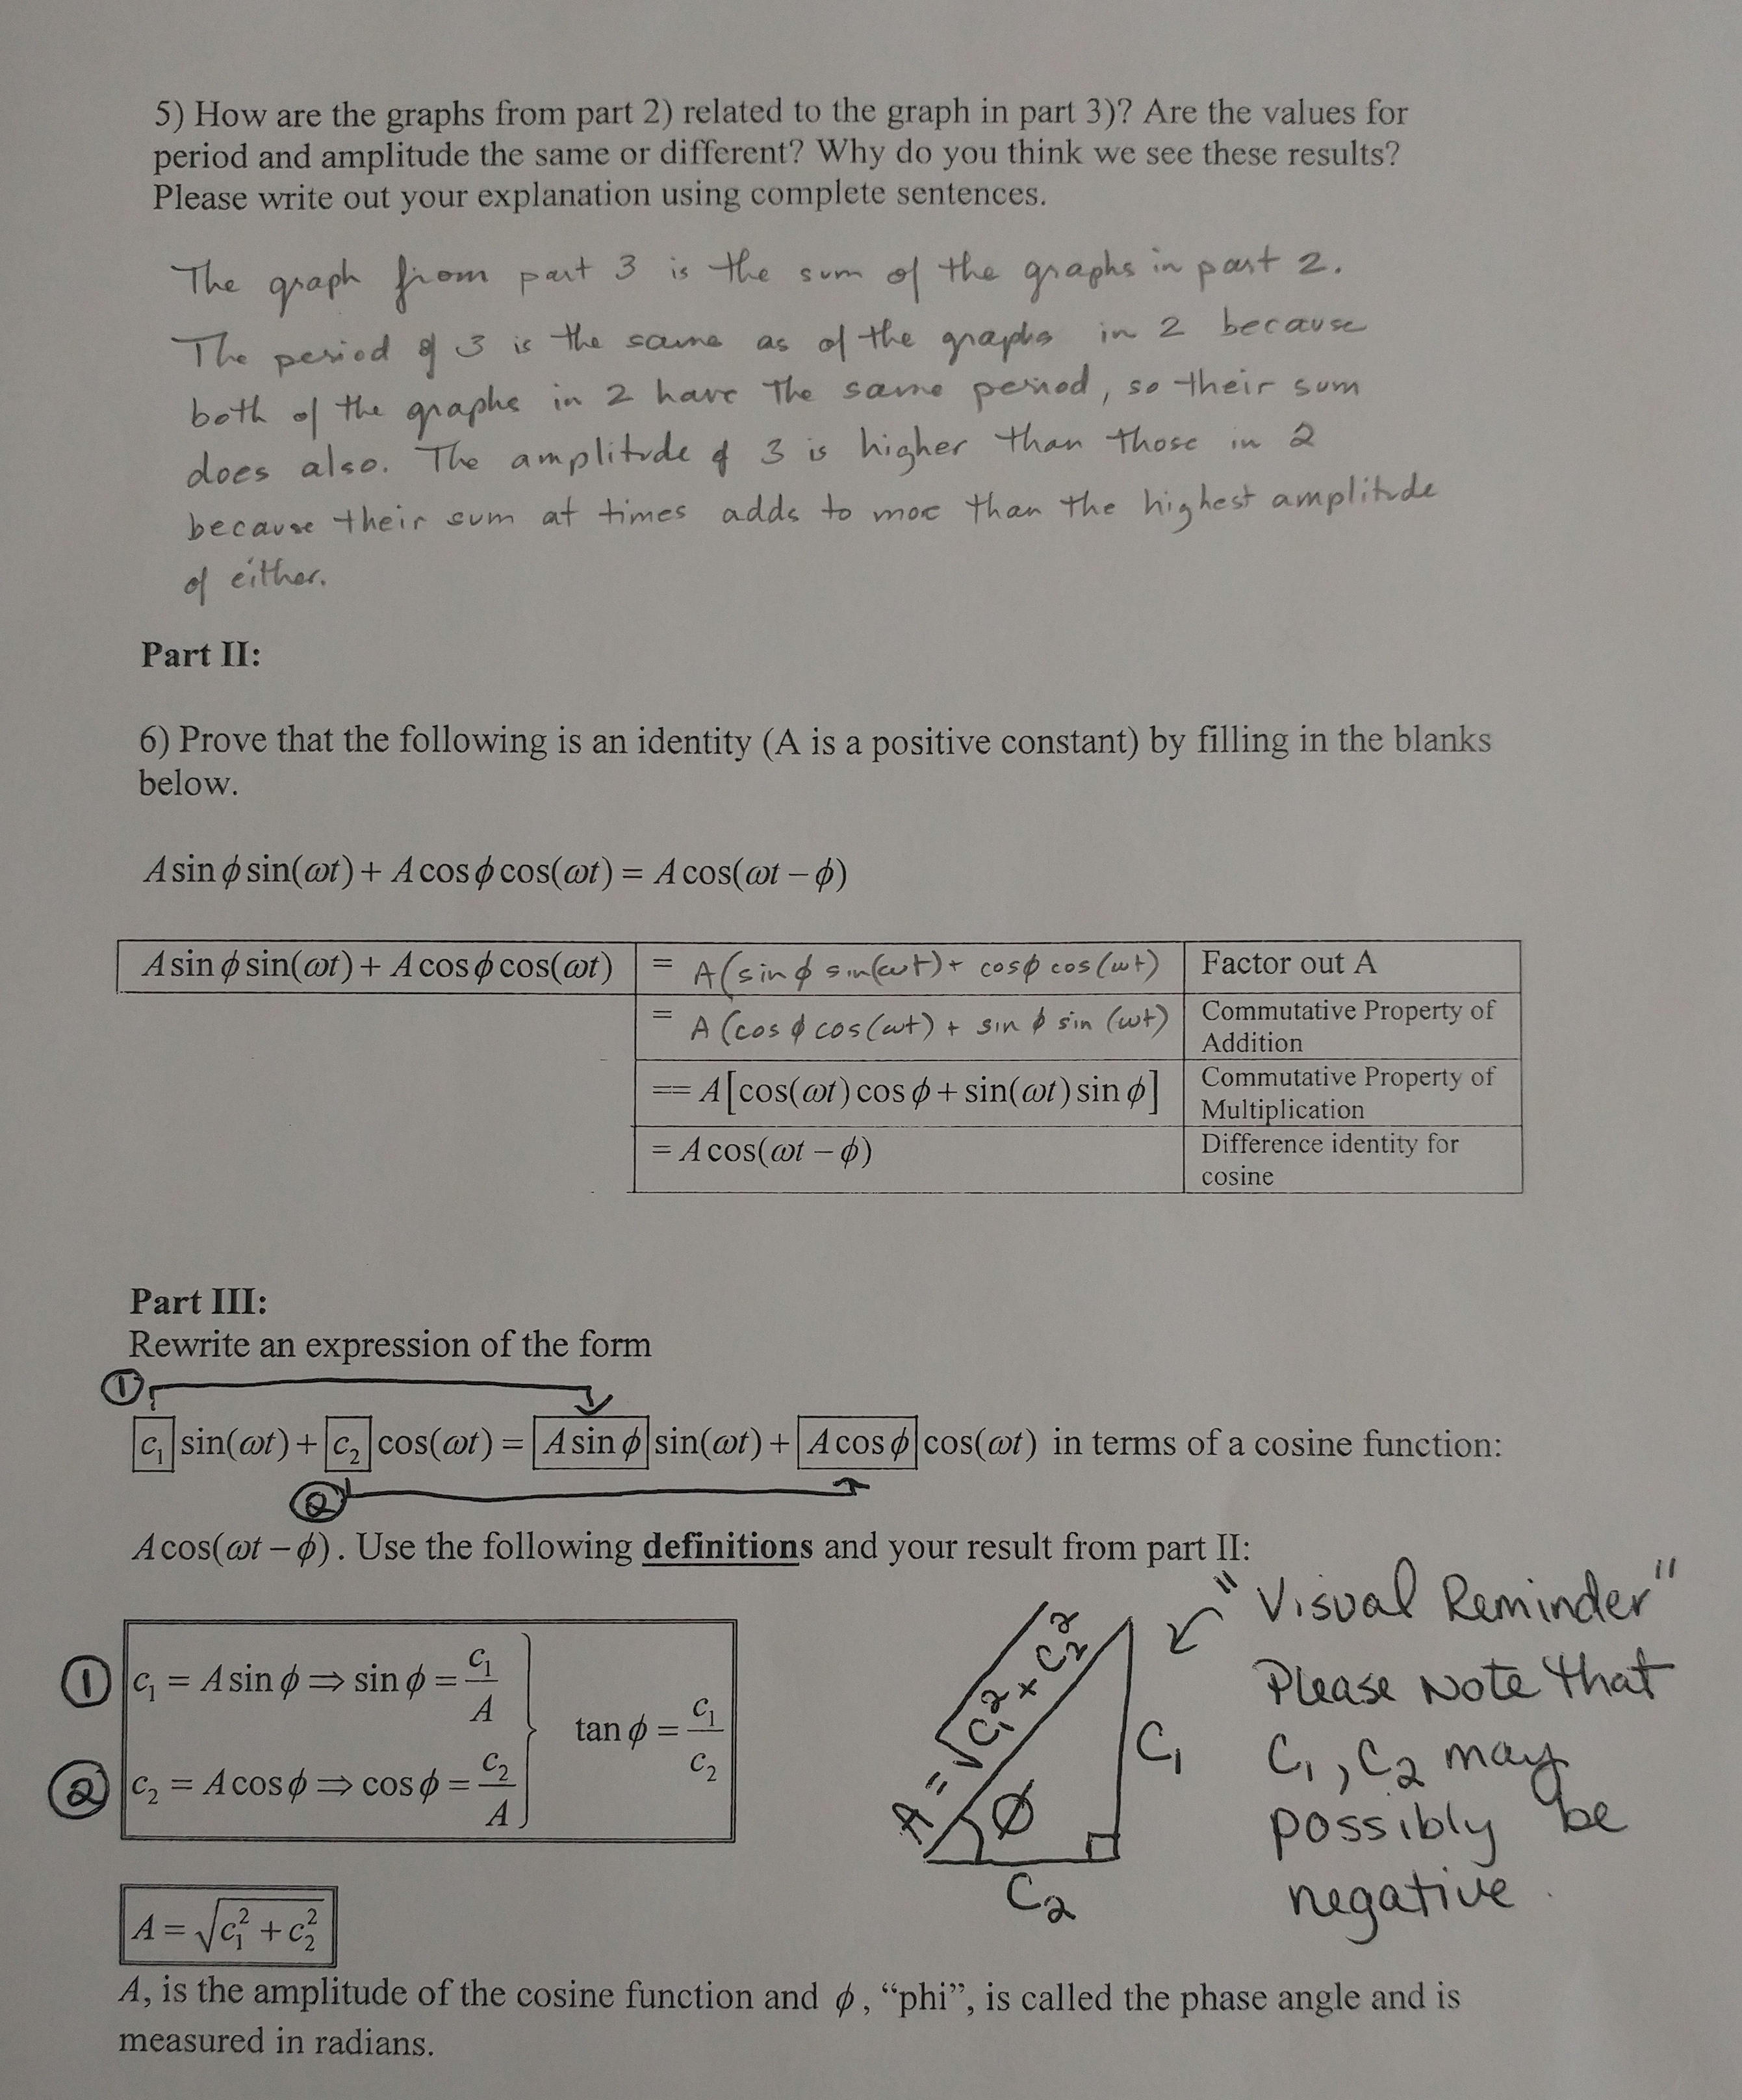 5) How are the graphs from part 2) related to the graph in part 3)? Are the values for
period and amplitude the same or different? Why do you think we see these results?
Please write out your explanation using complete sentences.
The graph from part 3 is the sum of the graphs in part 2.
The period of 3 is the same as of the graphs in 2 because
both of the graphs in 2 have the same period, so their sum
does also. The amplitude of 3 is higher than those in 2
because their sum at times adds to moe than the highest amplitude
of either.
Part II:
6) Prove that the following is an identity (A is a positive constant) by filling in the blanks
below.
A sin ϕ sin(ωt) + A cos ϕ cos(ωt) = A cos(ωt − ϕ)
A sin ϕ sin(ωt) + A cos ϕ cos(ωt) = A(sin ϕ sin(ωt) + cos ϕ cos(ωt) Factor out A
= A (cos ϕ cos(ωt) + sin ϕ sin (ωt) Commutative Property of
Addition
== A[cos(ωt) cos ϕ + sin(ωt) sin ϕ] Commutative Property of
Multiplication
= A cos(ωt − ϕ) Difference identity for
cosine
Part III:
Rewrite an expression of the form
①
c₁ sin(ωt) + c₂ cos(ωt) = A sin ϕ sin(ωt) + A cos ϕ cos(ωt) in terms of a cosine function:
②
A cos(ωt − ϕ). Use the following definitions and your result from part II:
"Visual Reminder"
Please Note that
C₁, C₂ may
possibly be
negative.
① c₁ = A sin ϕ ⇒ sin ϕ = c₁/A
tan ϕ = c₁/c₂
② c₂ = A cos ϕ ⇒ cos ϕ = c₂/A
A = √C₁² + C₂²
C₁
ϕ
C₂
A = √c₁² + c₂²
A, is the amplitude of the cosine function and ϕ, “phi”, is called the phase angle and is
measured in radians.